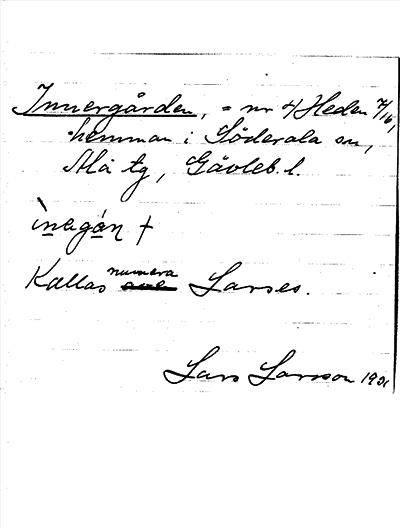 Innergården, = nr 4 Heden 7/16,
hemman i Söderala sn,
Ala tg, Gävleb. l.
ìnagå̀n †
Kallas numera Larses.
Lars Larsson 1931